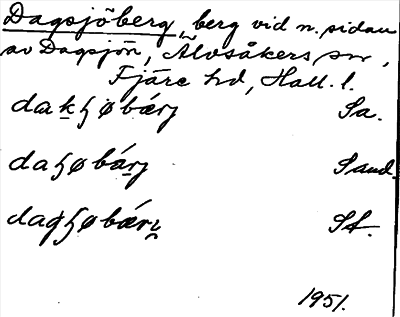 Dagsjöberg, berg vid n. sidan
av Dagsjön, Älvsåkers sn,
Fjäre hd, Hall. l.
dakʃøbærj Sa.
daʃøbárj Sand.
dagʃøbærj St.
1951.